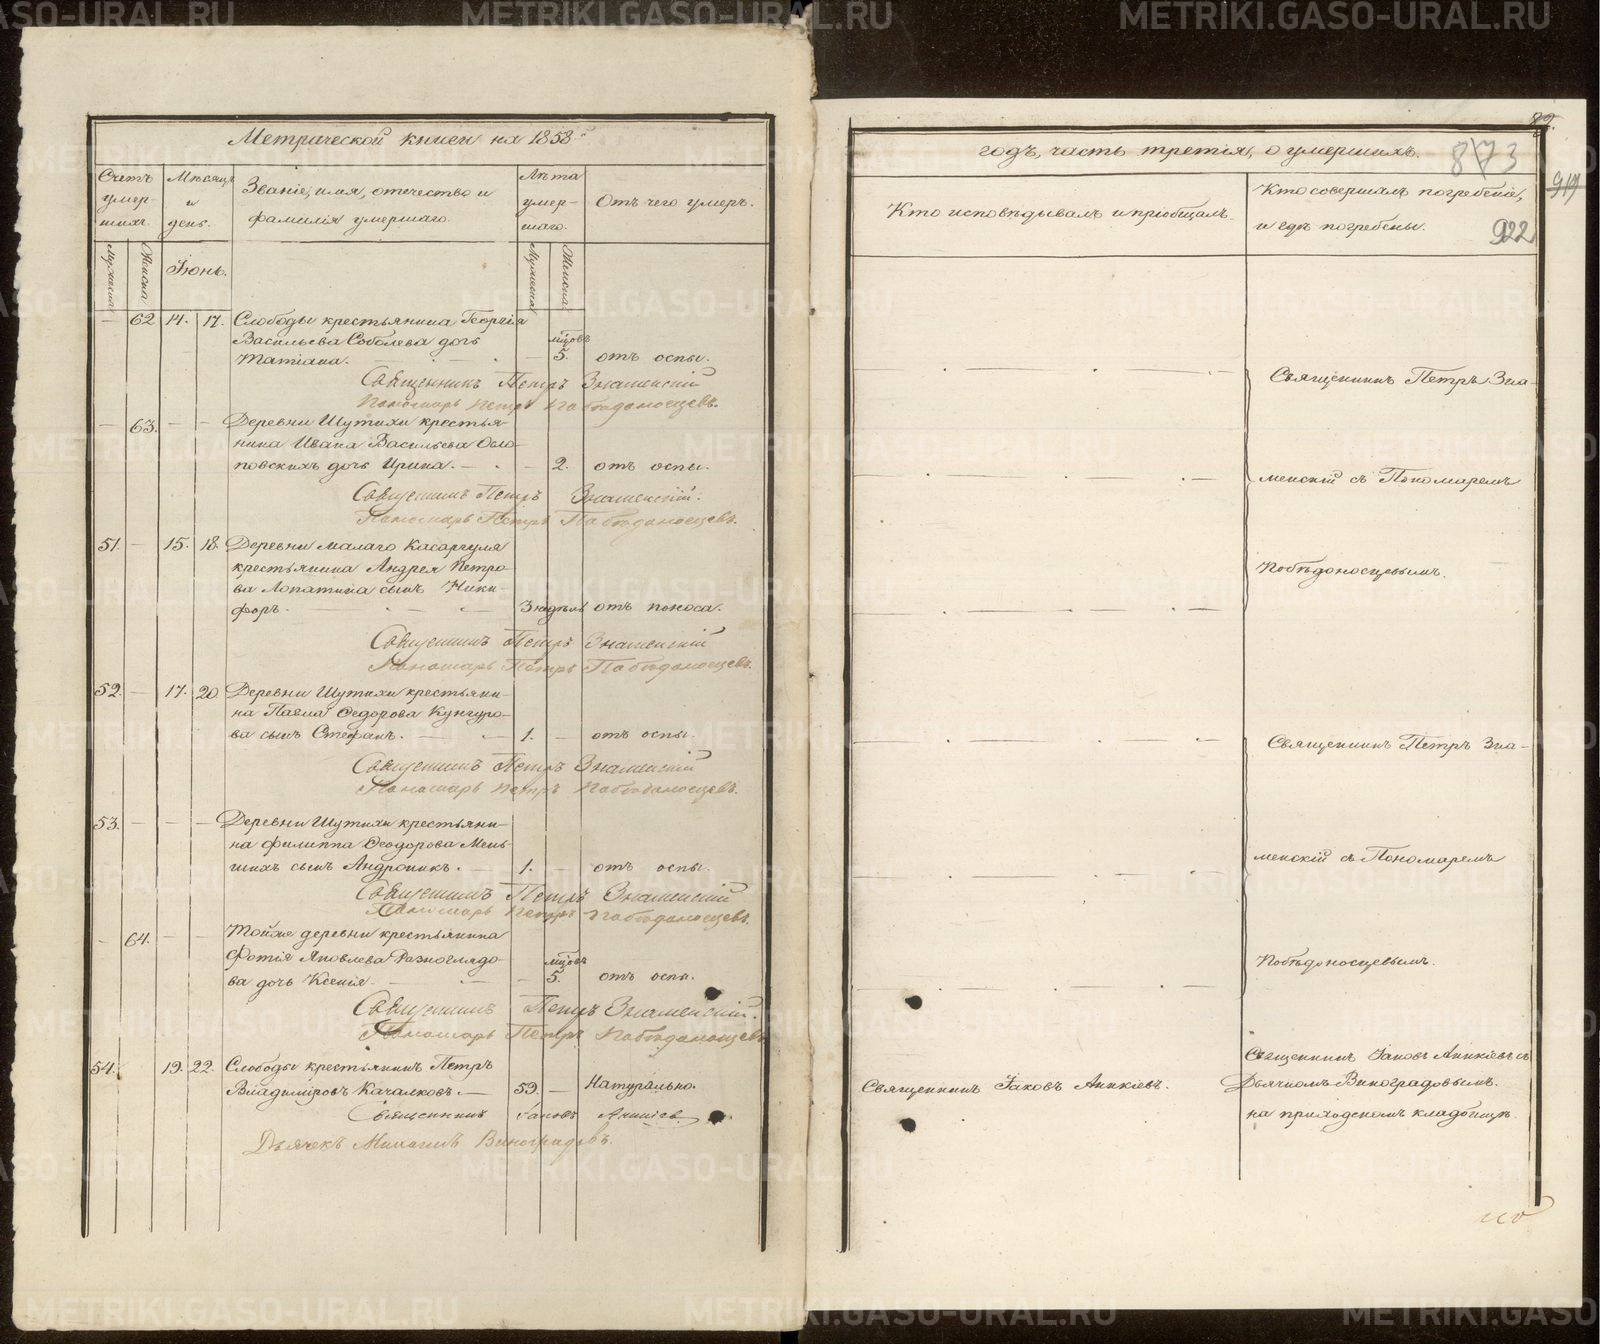 Метрической книги на 1858й
Счетъ умер-шихъ.
Мѣсяцъ и день.
Званіе, имя, отечество и фамилія умершаго.
Лѣта умер-шаго.
Отъ чего умеръ.
Мужеска
Женска
Іюнь.
Мужеска
Женска
— 62 14. 17. Слободы крестьянина Георгія
Васильева Соболева дочь мцовъ
Татіана. — 5. отъ оспы.
Священникъ Петръ Знаменскій
Пономарь Петръ Побѣдоносцевъ.
— 63. — — Деревни Шутихи крестья-
нина Ивана Васильева Осло-
повскихъ дочь Ирина. — — 2. отъ оспы.
Священникъ Петръ Знаменскій.
Пономарь Петръ Побѣдоносцевъ.
51. — 15. 18. Деревни Малаго Касаргуля
крестьянина Андрея Петро-
ва Лопатина сынъ Ники-
форъ. — 3 недѣль отъ поноса.
Священникъ Петръ Знаменскій
Пономарь Петръ Побѣдоносцевъ.
52. — 17. 20. Деревни Шутихи крестьяни-
на Павла Ѳедорова Кунгуро-
ва сынъ Стефанъ. — 1. — отъ оспы.
Священникъ Петръ Знаменскій
Пономарь Петръ Побѣдоносцевъ.
53. — — — Деревни Шутихи крестьяни-
на Филиппа Ѳеодорова Мень-
шихъ сынъ Андроникъ. — 1. — отъ оспы.
Священникъ Петръ Знаменскій
Пономарь Петръ Побѣдоносцевъ.
— 64. — — Тойже деревни крестьянина
Фотія Яковлева Разногляdo- мцовъ
ва дочь Ксенія. — 5. отъ оспы.
Священникъ Петръ Знаменскій.
Пономарь Петръ Побѣдоносцевъ
54. 19. 22. Слободы крестьянинъ Петръ
Владиміровъ Качалковъ. — 59. — Натурально.
Священникъ Іаковъ Аникіевъ.
Дьячекъ Михаилъ Виноградовъ.
82.
годъ, часть третія, о умершихъ.
873
919
Кто исповѣдывалъ и пріобщалъ.
Кто совершалъ погребеніе,
и гдѣ погребены.
922
Священникъ Петръ Зна-
менскій съ Пономаремъ
Побѣдоносцевымъ.
Священникъ Петръ Зна-
менскій съ Пономаремъ
Побѣдоносцевымъ.
Священникъ Іаковъ Аникіевъ съ
Священникъ Іаковъ Аникіевъ. Дьячкомъ Виноградовымъ.
на приходскомъ кладбищѣ.
METRIKI.GASO-URAL.RU